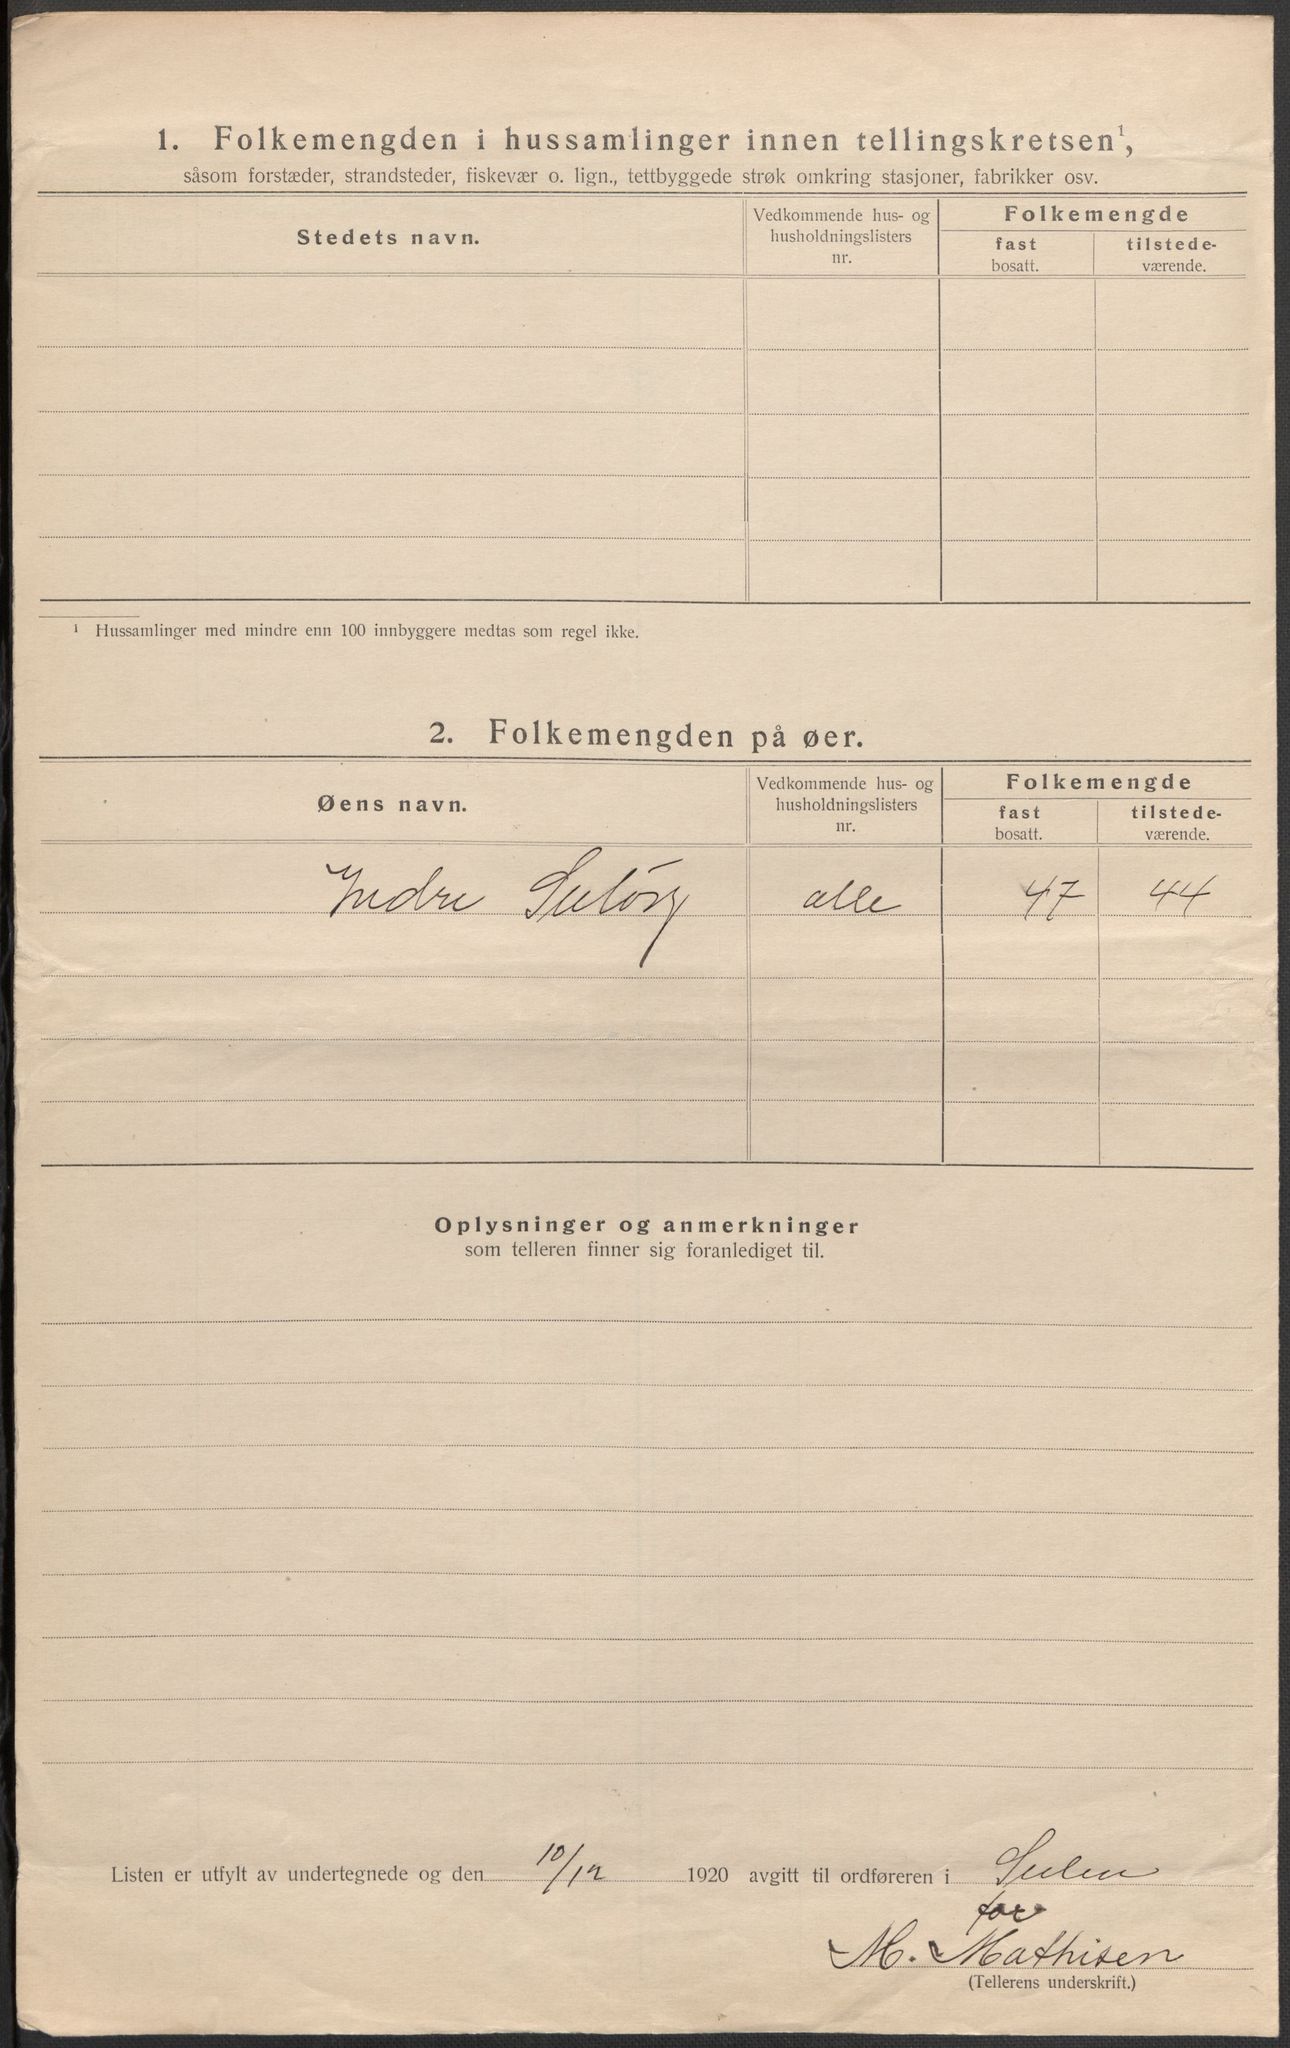 1. Folkemengden i hussamlinger innen tellingskretsen¹,
såsom forstæder, strandsteder, fiskevær o. lign., tettbyggede strøk omkring stasjoner, fabrikker osv.
Stedets navn.
Vedkommende hus- og
husholdningslisters
nr.
Folkemengde
fast
bosatt.
tilstede-
værende.
¹ Hussamlinger med mindre enn 100 innbyggere medtas som regel ikke.
2. Folkemengden på øer.
Øens navn.
Vedkommende hus- og
husholdningslisters
nr.
Folkemengde
fast
bosatt.
tilstede-
værende.
Indre Suløy alle 47 44
Oplysninger og anmerkninger
som telleren finner sig foranlediget til.
Listen er utfylt av undertegnede og den 10/12 1920 avgitt til ordføreren i Sulen
for
M. Mathisen
(Tellerens underskrift.)